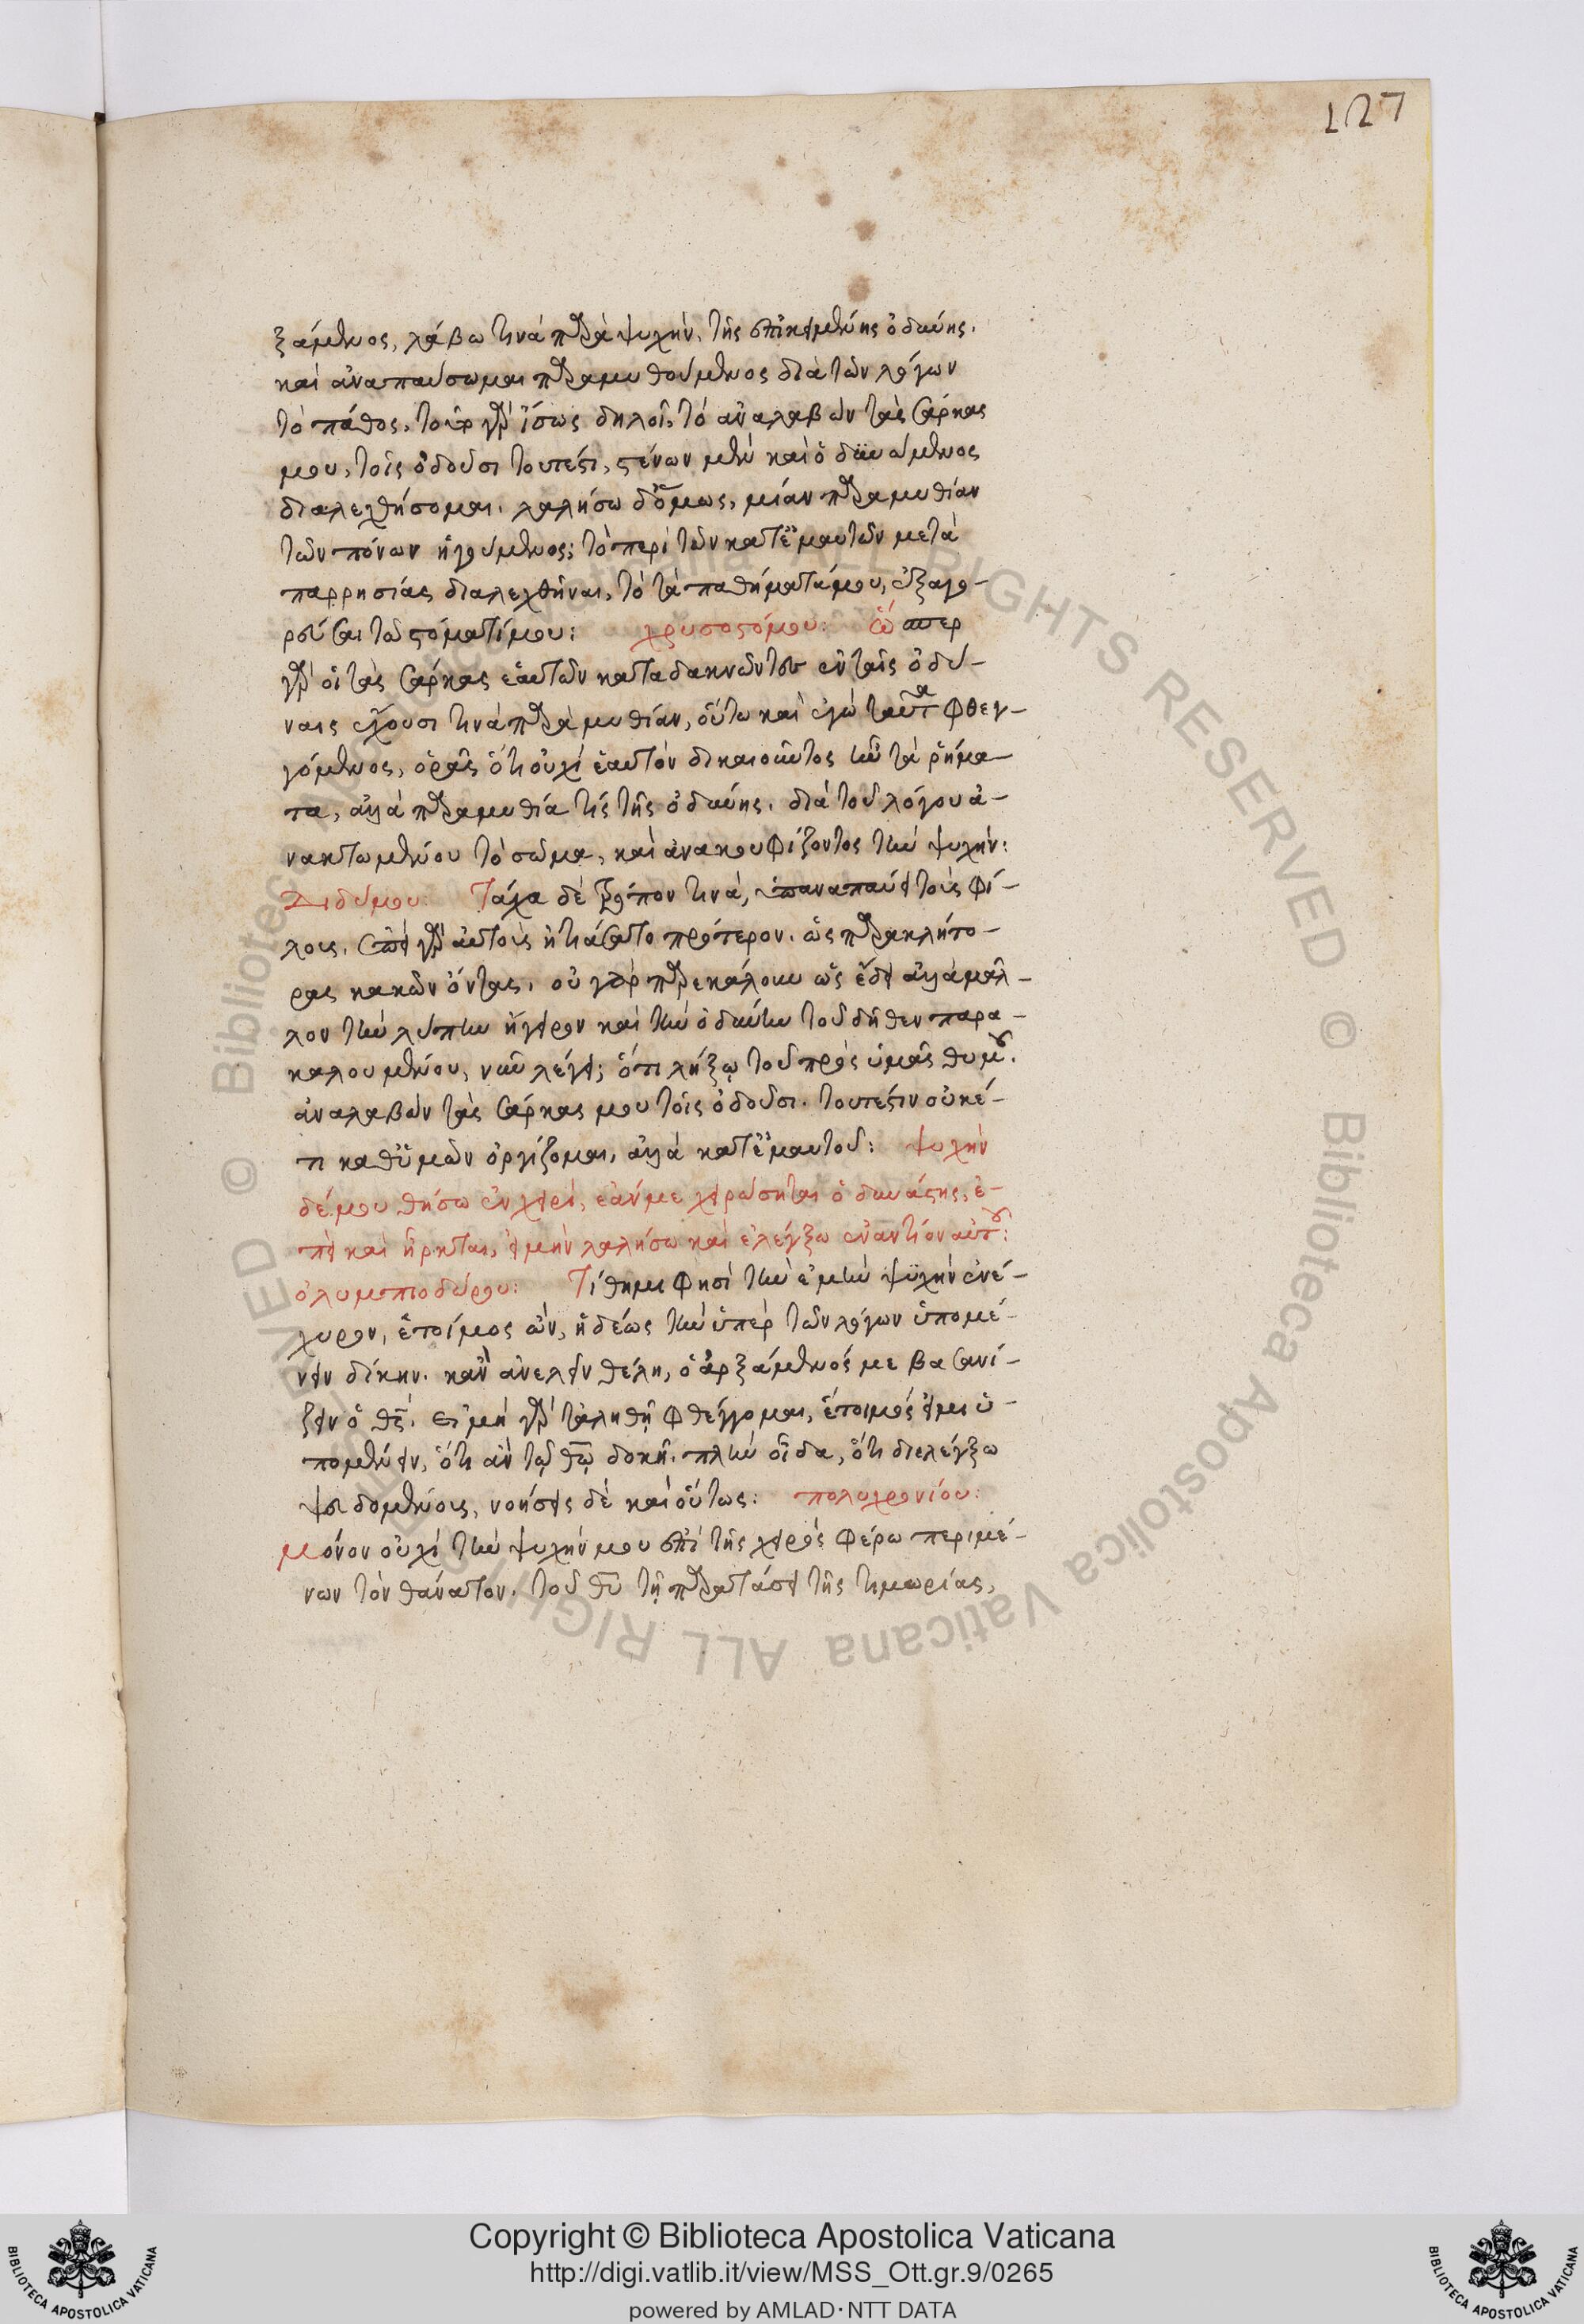 127
ξάμενος, λάβω τινὰ παραψυχὴν, τῆς ἐπικειμένης ὀδύνης.
καὶ ἀναπαύσωμαι παραμυθούμενος διὰ τῶν λόγων
τὸ πάθος, τοῦτο γὰρ ἴσως δηλοῖ, τὸ ἀναλαβὼν τὰς σάρκας
μου, τοῖς ὀδοῦσι τουτέστι, στένων μὲν καὶ ὀδυνώμενος
διαλεχθήσομαι. λαλήσω δ' ὅμως, μίαν παραμυθίαν
τῶν πόνων ἡγούμενος; τὸ περὶ τῶν κατ' ἐμαυτὸν μετὰ
παρρησίας διαλεχθῆναι, τὸ τὰ παθήματά μου, ἐξαγο-
ρεῦσαι τῶ στόματί μου: χρυσοστόμου: ὥσπερ
γὰρ οἱ τὰς σάρκας ἑαυτῶν καταδακνῶντες ἐν ταῖς ὀδύ-
ναις ἔχουσι τινὰ παραμυθίαν, οὕτω καὶ ἐγὼ ταῦτα φθεγ-
γόμενος, ὁρᾶς ὅτι οὐχὶ ἑαυτὸν δικαιοῦντος ἦν τὰ ῥήμα-
τα, ἀλλὰ παραμυθία τίς τῆς ὀδύνης. διὰ τοῦ λόγου ἀ-
νακτωμένου τὸ σῶμα, καὶ ἀνακουφίζοντος τὴν ψυχήν:
Διδύμου: Τάχα δὲ τρόπον τινὰ, ἐπαναπαύει τοὺς φί-
λους. ἐπεὶ γὰρ αὐτοὺς ᾐτιάσατο πρότερον. ὡς παρακλήτο-
ρας κακῶν ὄντας. οὐ γὰρ παρεκάλουν ὡς ἔδει ἀλλὰ μᾶλ-
λον τὴν λύπην ἤγειρον καὶ τὴν ὀδύνην τοῦ δῆθεν παρα-
καλουμένου, νῦν λέγει; ὅτι λήξω τοῦ πρὸς ὑμᾶς θυμοῦ.
ἀναλαβὼν τὰς σάρκας μου τοῖς ὀδοῦσι. τουτέστιν οὐκέ-
τι καθ' ὑμῶν ὀργίζομαι, ἀλλὰ κατ' ἐμαυτοῦ: ψυχὴν
δέ μου θήσω ἐν χειρί, ἐάν με χειρώσηται ὁ δυνάστης, ἐ-
πεὶ καὶ ἦρκται, εἰ μὴν λαλήσω καὶ ἐλέγξω ἐναντίον αὐτοῦ:
ὀλυμπιοδώρου: Τίθημι φησὶ τὴν ἐμὴν ψυχὴν ἐνέ-
χυρον, ἑτοίμος ὢν, ἡδέως τὴν ὑπὲρ τῶν λόγων ὑπομέ-
νειν δίκην. κἂν ἀνελεῖν θέλη, ὁ ἀρξάμενός με βασανί-
ζειν ὁ θς. εἰ μὴ γὰρ τἀληθῆ φθέγγομαι, ἕτοιμός εἰμι ὑ-
πομένειν, ὅτι ἂν τῷ θῷ δοκῇ. πλὴν οἶδα, ὅτι διελέγξω
ψευδομένους, νοήσεις δὲ καὶ οὕτως: πολυχρονίου:
Μόνον οὐχὶ τὴν ψυχήν μου ἐπὶ τῆς χειρὸς φέρω περιμέ-
νων τὸν θάνατον. τοῦ θυ τῇ παρατάσει τῆς τιμωρίας,
Copyright © Biblioteca Apostolica Vaticana
http://digi.vatlib.it/view/MSS_Ott.gr.9/0265
powered by AMLAD·NTT DATA